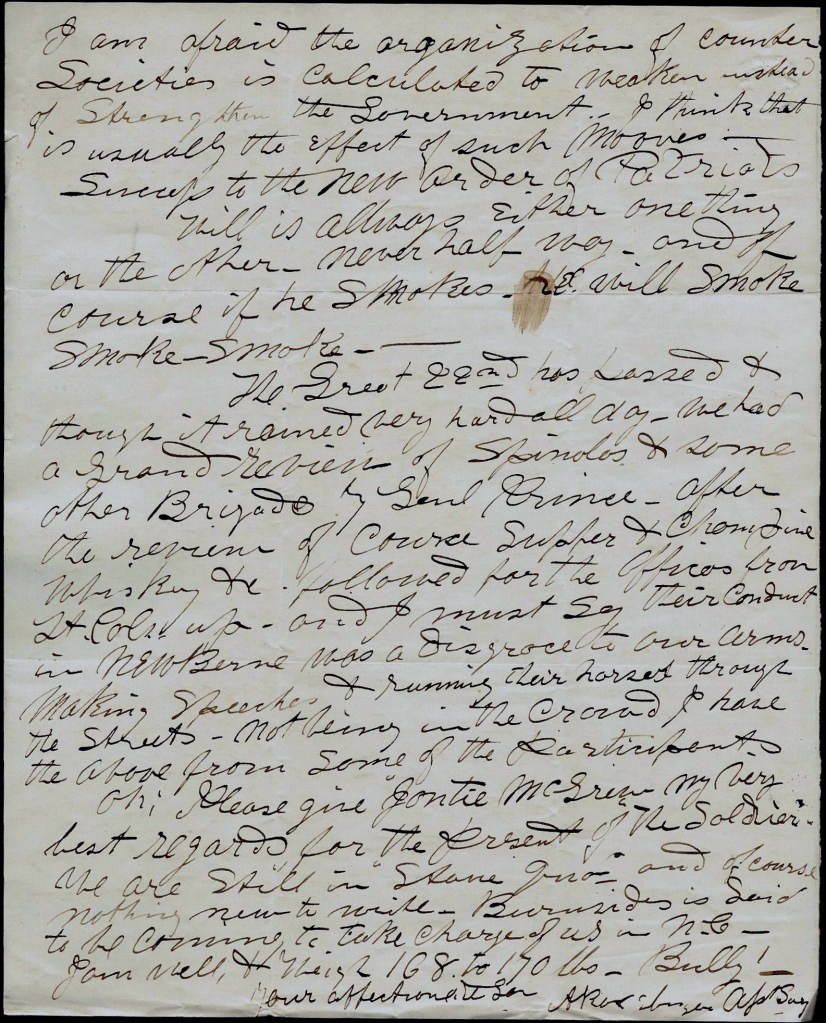 I am afraid the organization of counter
Societies is calculated to weaken instead
of Strengthen the Government - I think that
is usually the effect of such Mooves -
Success to the New order of Patriots
Will is allways Either one thing
or the other - never half way - and of
course if he Smokes - he will Smoke
Smoke - Smoke -
The Great 22nd has passed &
though it rained very hard all day - we had
a Grand review of Spinolas & some
other Brigade by Genl Prince - after
the review of Course Supper & Champine
Whiskey &c. followed for the Officers from
Lt. Cols. up - and I must Say their Conduct
in NewBerne was a disgrace to our arms.
Making Speeches & running their horses through
the Streets - Not being in the Crowd I have
the above from Some of the Participants
Oh; Please give Jontie McGrew my very
best regards, for the present of "The Soldier's
We are Still in "Statue quo" and of course
nothing new to write - Burnsides is Said
to be Coming to take charge of us in N.C -
I am well, & Weigh 168 to 170 lbs - Bully! -
Your affectionate Son A Asst Surg